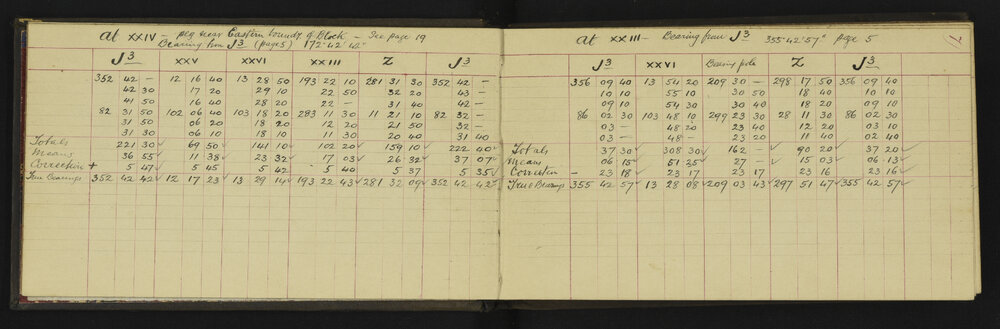 at XXIV - peg near Eastern boundy of Block - See page 19
Bearing from J3 (page 5) 172° 42' 42"
J3 XXV XXVI XXIII Z J3
352 42 - 12 16 40 13 28 50 193 22 10 281 31 30 352 42 -
42 30 17 20 29 10 22 50 32 20 43 -
41 50 16 40 28 20 22 - 31 40 42 -
82 31 50 102 06 40 103 18 20 283 11 30 11 21 10 82 32 -
31 50 06 20 18 20 12 20 21 50 32 -
31 30 06 10 18 10 11 30 20 40 31 40
Totals 221 30 69 50 141 10 102 20 159 10 222 40
Means 36 55 11 38 23 32 17 03 26 32 37 07
Correction + 5 47 5 45 5 42 5 40 5 37 5 35
True Bearings 352 42 42 12 17 23 13 29 14 193 22 43 281 32 09 352 42 42
at XXIII - Bearing from J3 355° 42' 57" page 5
7
J3 XXVI Bearing pole Z J3
356 09 40 13 54 20 209 30 - 298 17 50 356 09 40
10 10 55 10 30 50 18 40 10 10
09 10 54 30 30 40 18 20 09 10
86 02 30 103 48 10 299 23 30 28 11 30 86 02 30
03 - 48 20 23 40 12 20 03 10
03 - 48 - 23 20 11 40 02 40
Totals 37 30 308 30 162 - 90 20 37 20
Means 06 15 51 25 27 - 15 03 06 13
Correction - 23 18 23 17 23 17 23 16 23 16
True Bearings 355 42 57 13 28 08 209 03 43 297 51 47 355 42 57